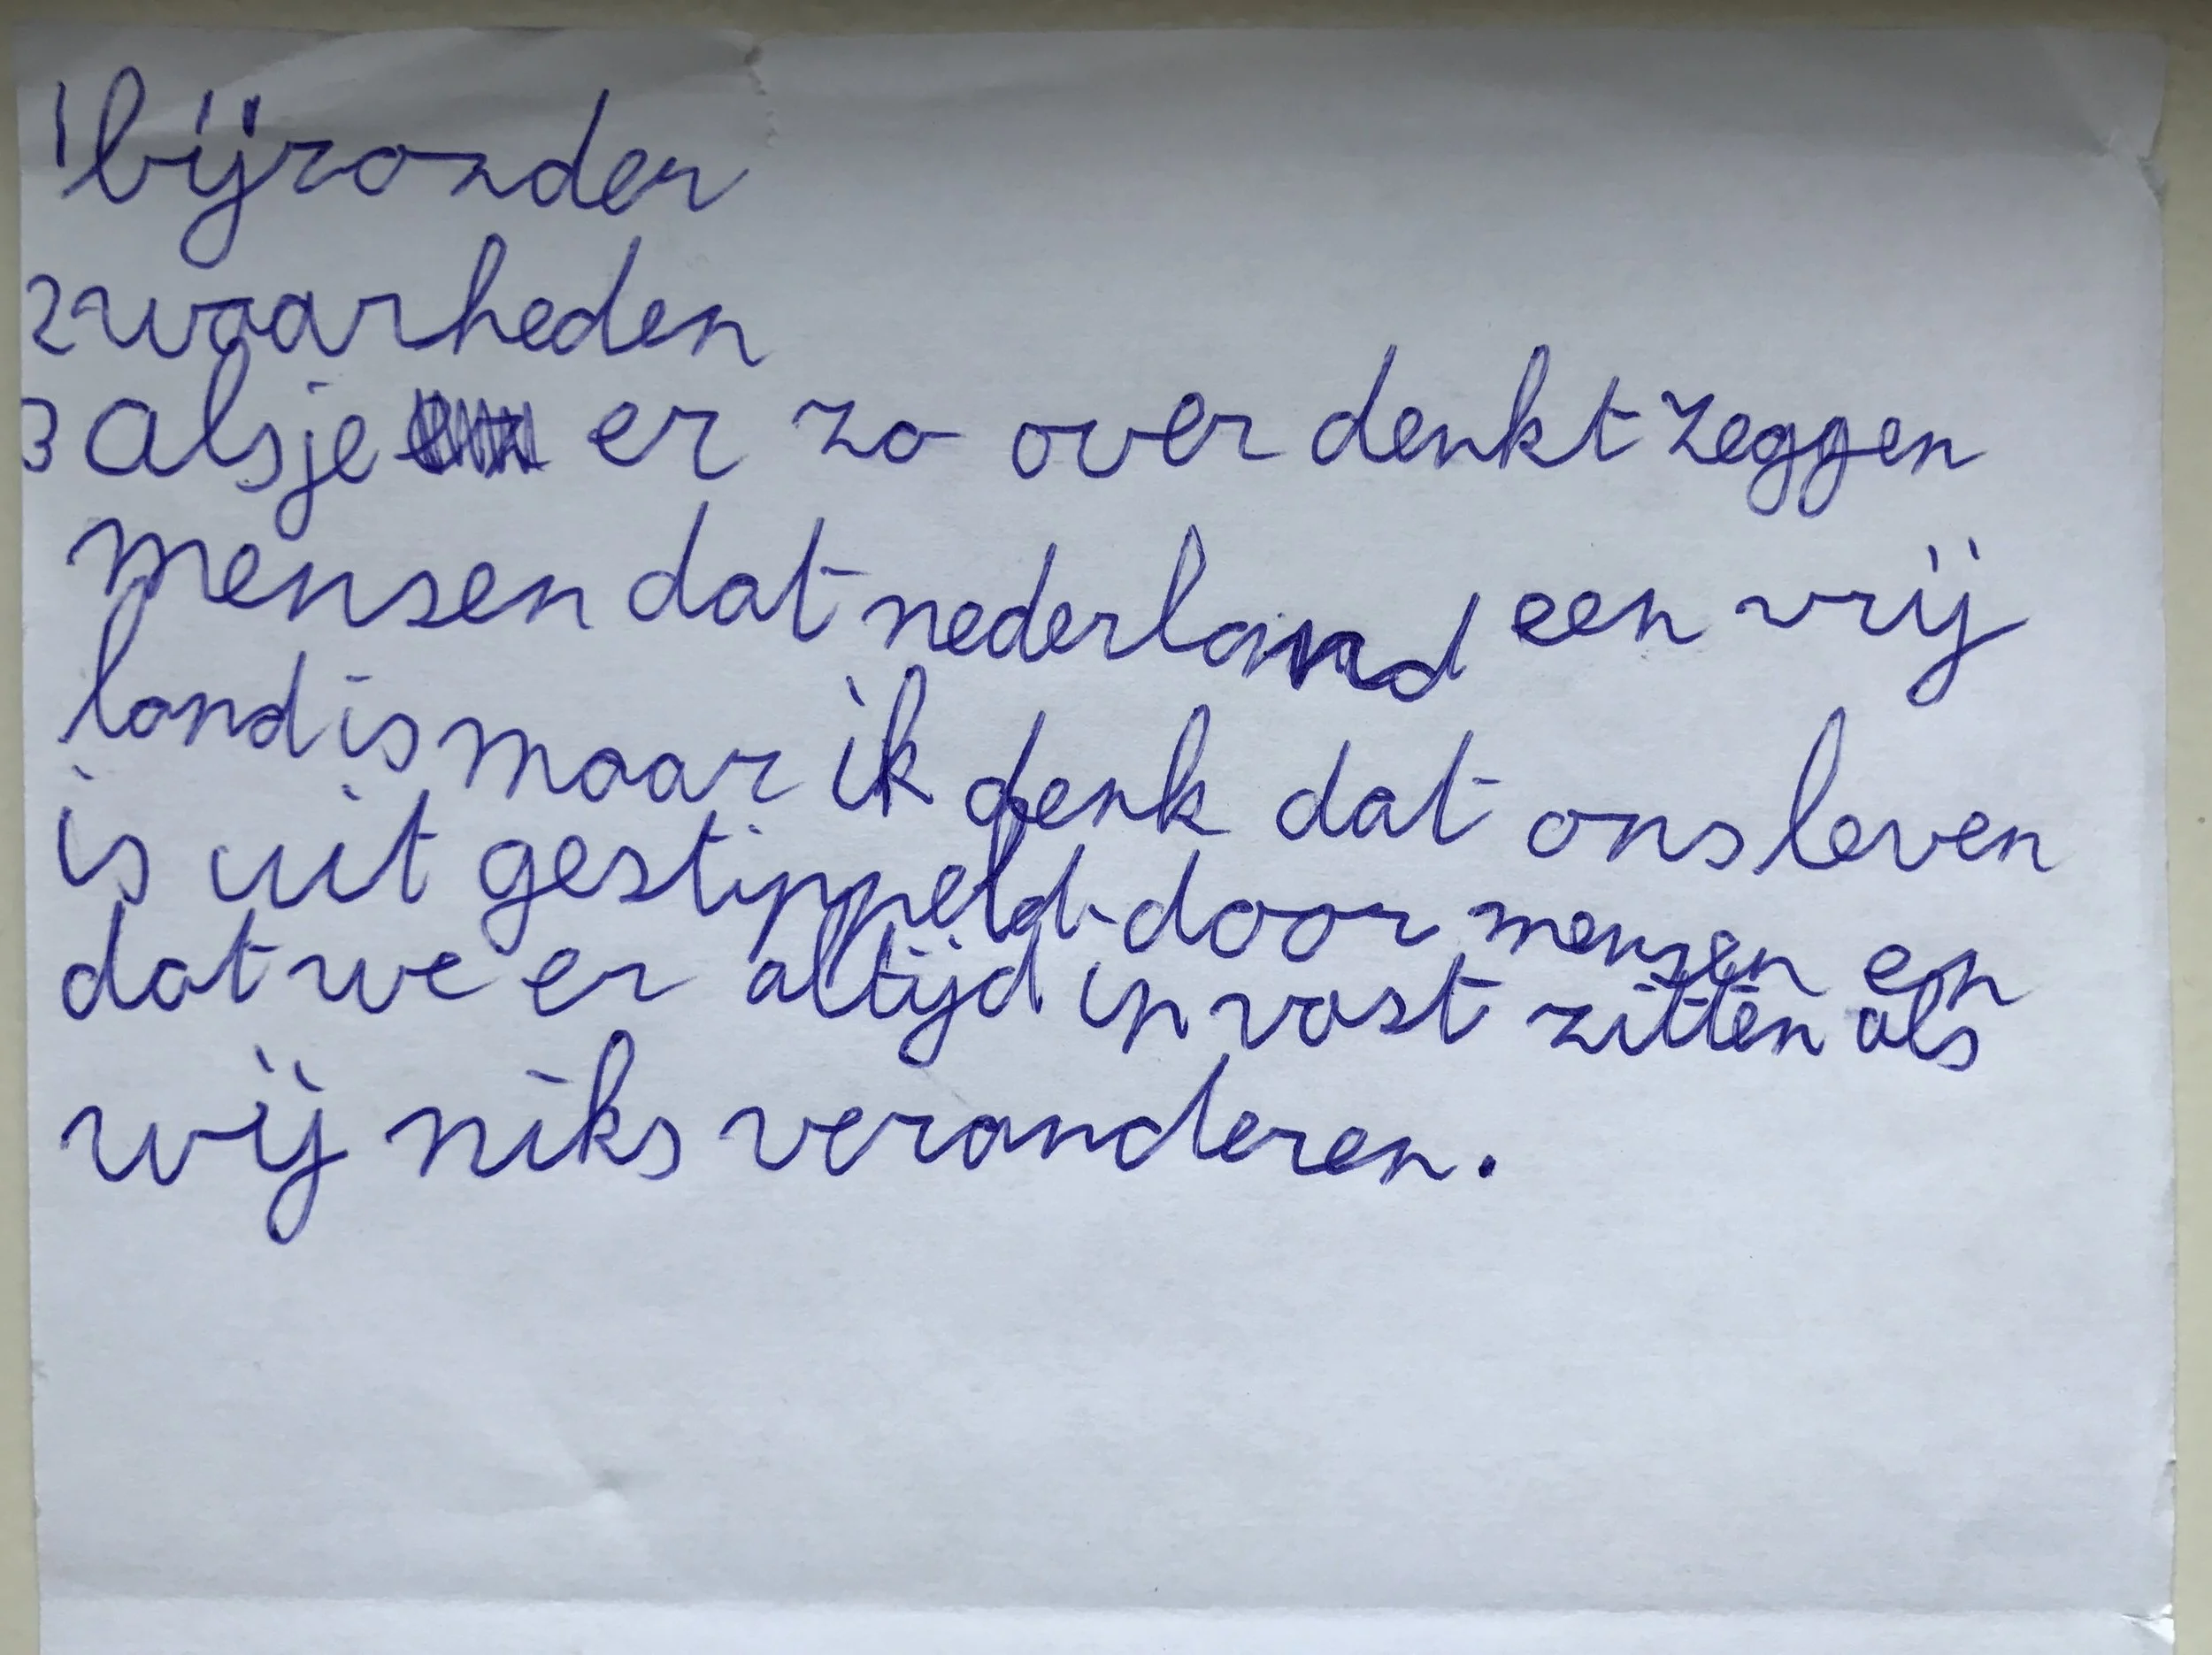 1 bijzonder
2 waarheden
3 als je er zo over denkt zeggen
mensen dat nederland een vrij
land is maar ik denk dat ons leven
is uit gestippeld door mensen en
dat we er altijd in vast zitten als
wij niks veranderen.